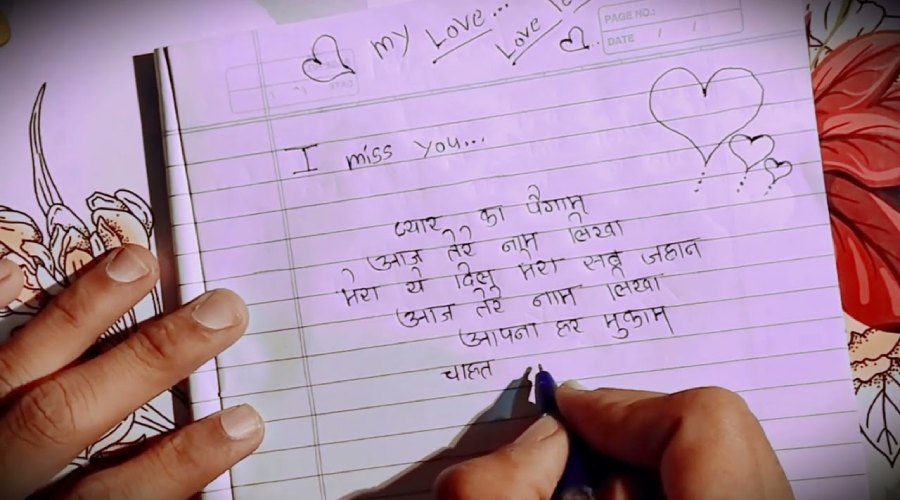 my Love...
Love
PAGE NO.:
DATE / /
I miss you...
प्यार का पैगाम
आज तेरे नाम लिखा
मेरा ये दिल मेरा सब जहान
आज तेरे नाम लिखा
आपना हर मुकाम
चाहत